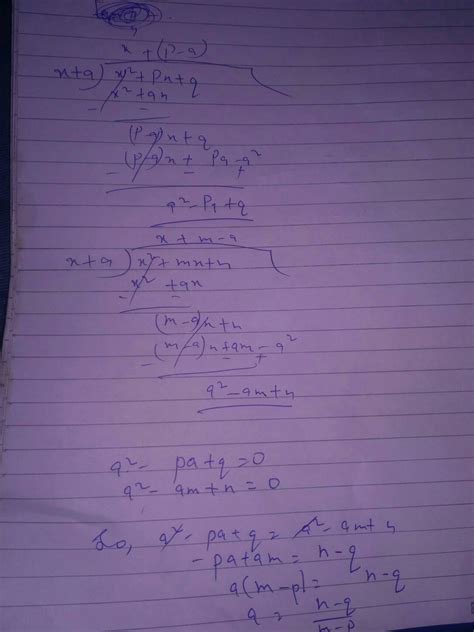 x + (p-a)
x+a) x² + px + q
x² + ax
- -
(p-a)x + q
(p-a)x + pa - a²
- - +
a² - pa + q
x + m - a
x+a) x² + mx + n
x² + ax
- -
(m-a)x + n
(m-a)x + am - a²
- - +
a² - am + n
a² - pa + q = 0
a² - am + n = 0
So, a² - pa + q = a² - am + n
- pa + am = n - q
a(m-p) = n - q
a = n-q
m-p